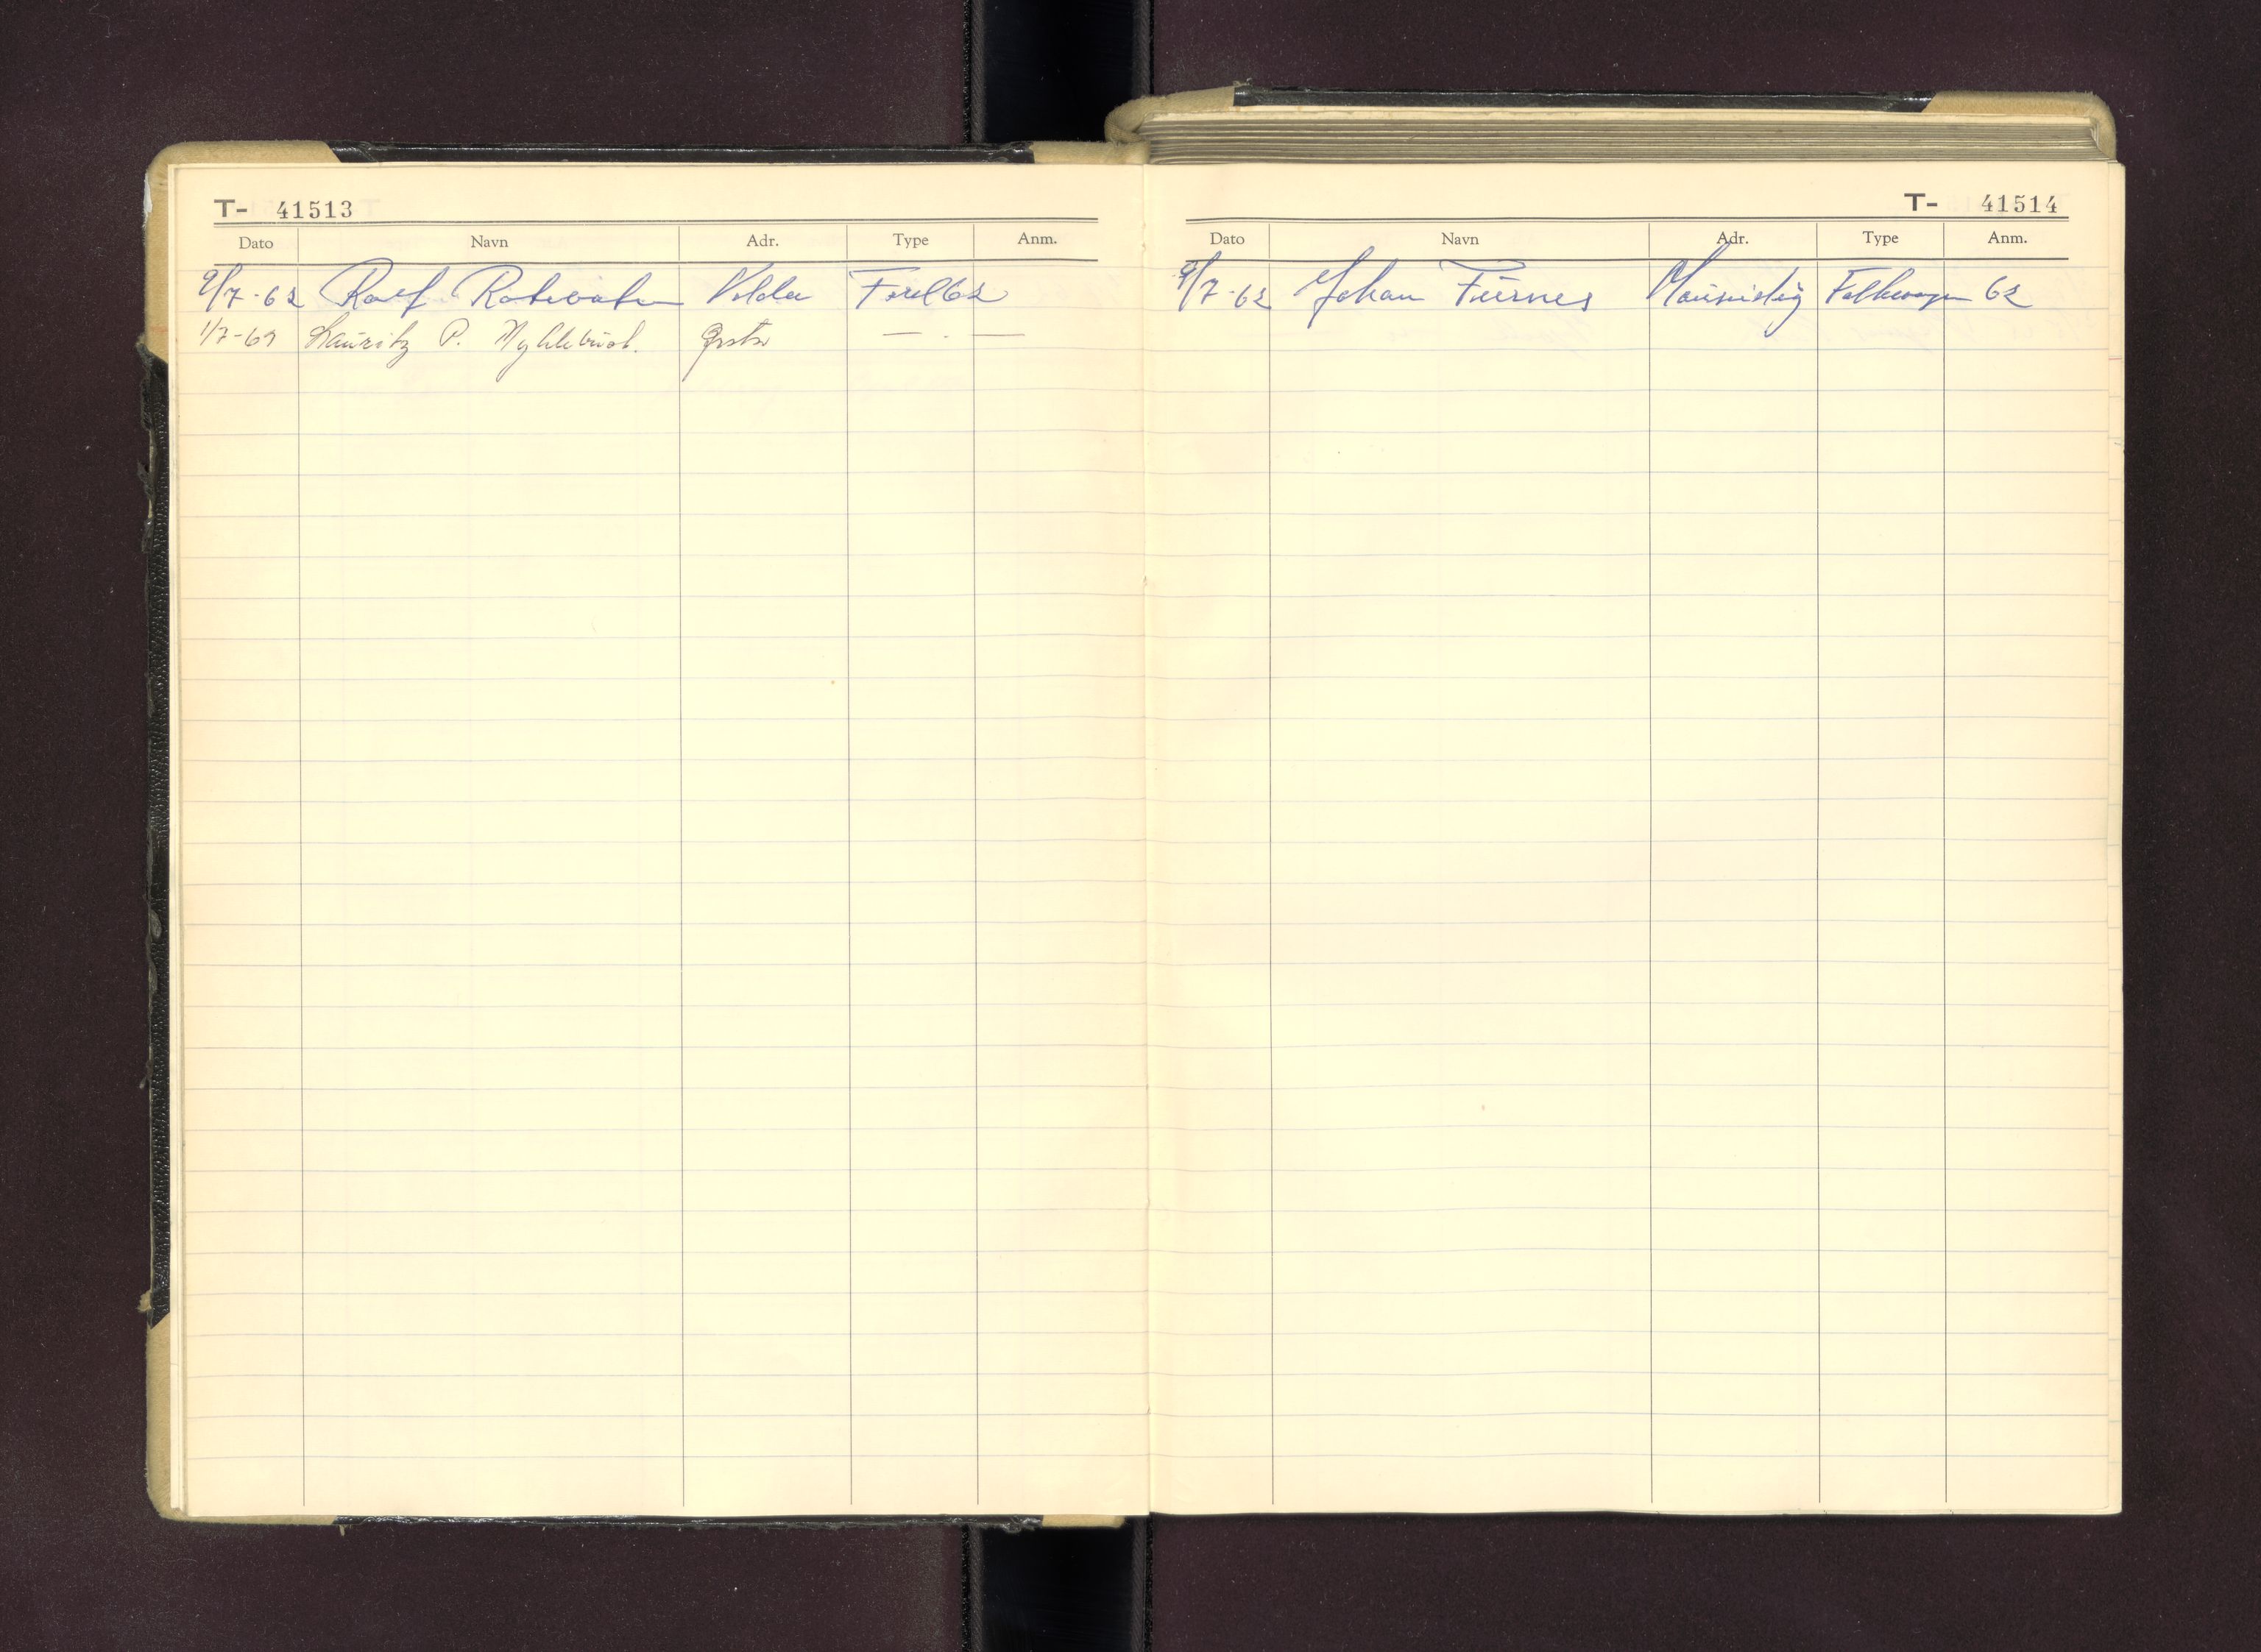 T- 41513
Dato Navn Adr. Type Anm.
9/7-62 Rolf Rotevatn Volda Ford 62
1/7-69 Lauritz P. Myklebust. Ørsta — —
T- 41514
Dato Navn Adr. Type Anm.
9/7-62 Johan Furnes Folkwagen 62